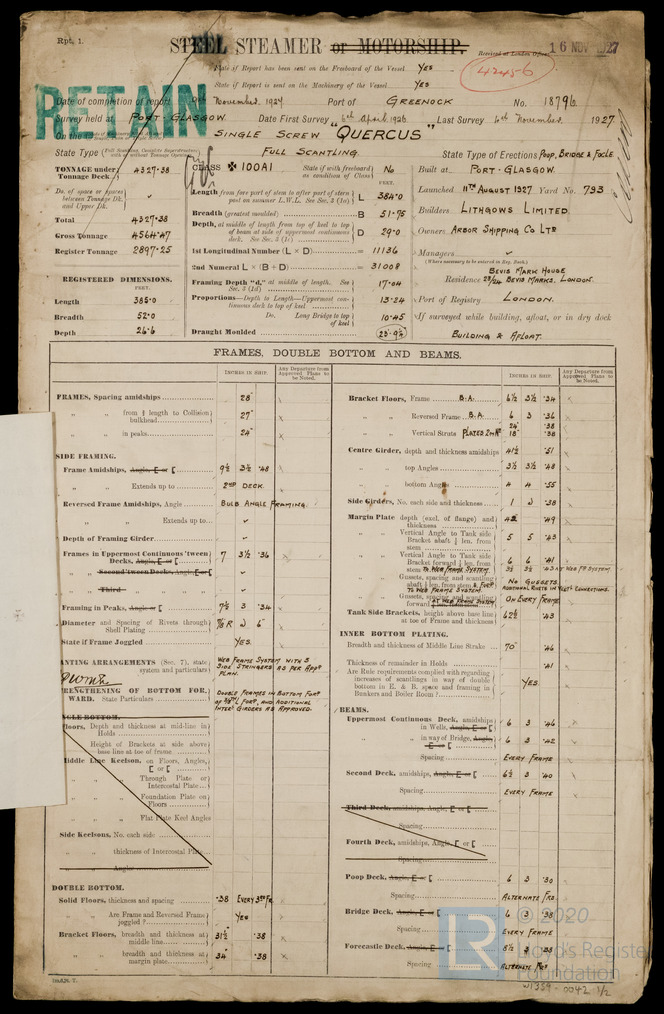 Rpt. 1.
STEEL STEAMER or MOTORSHIP.
Received at London Office 16 NOV 1927
42456
State if Report has been sent on the Freeboard of the Vessel Yes
State if Report is sent on the Machinery of the Vessel Yes
RETAIN
Date of completion of report November, 1927 Port of GREENOCK No. 18796
Survey held at PORT-GLASGOW Date First Survey 6th April 1926 Last Survey 4th November, 1927
On the SINGLE SCREW "QUERCUS"
State Type FULL SCANTLING. State Type of Erections POOP, BRIDGE & FOCLE
TONNAGE under Tonnage Deck 4327.38
Do. of space or spaces between Tonnage Dk. and Upper Dk.
Total 4327.38
Gross Tonnage 4564.47
Register Tonnage 2897.25
REGISTERED DIMENSIONS.
FEET.
Length 385.0
Breadth 52.0
Depth 26.6
CLASS 100A1 State if with freeboard as condition of Class No
FEET.
Length from fore part of stem to after part of stern post on summer L.W.L. See Sec. 3 (1a) L 384.0
Breadth (greatest moulded) B 51.75
Depth, at middle of length from top of keel to top of beam at side of uppermost continuous deck. See Sec. 3 (1c) D 29.0
1st Longitudinal Number (L × D) = 11136
2nd Numeral L × (B + D) = 31008
Framing Depth "d," at middle of length. See Sec. 3 (1d) 17.04
Proportions—Depth to Length—Uppermost continuous deck to top of keel 13.24
Do. Long Bridge to top of keel 10.45
Draught Moulded 23.9¼
Built at PORT-GLASGOW
Launched 11TH AUGUST 1927 Yard No. 793
Builders LITHGOWS LIMITED
Owners ARBOR SHIPPING CO LTD
Managers
(Where necessary to be entered in Reg. Book.)
BEVIS MARK HOUSE
Residence 23/24 BEVIS MARKS, LONDON.
Port of Registry LONDON.
If surveyed while building, afloat, or in dry dock
BUILDING & AFLOAT.
FRAMES, DOUBLE BOTTOM AND BEAMS.
INCHES IN SHIP. Any Departure from Approved Plans to be Noted.
FRAMES, Spacing amidships 28"
" " from ⅕ length to Collision bulkhead 27"
" " in peaks 24"
SIDE FRAMING.
Frame Amidships, Angle, E or [ 9½ 3½ .48
" " Extends up to 2ND DECK
Reversed Frame Amidships, Angle BULB ANGLE FRAMING.
" " Extends up to
Depth of Framing Girder
Frames in Uppermost Continuous 'tween Decks, Angle, E or [ 7 3½ .36
" " Second 'tween Decks, Angle, E or [
" " Third "
Framing in Peaks, Angle or [ 7½ 3 .34
Diameter and Spacing of Rivets through Shell Plating 7/8 R 6"
State if Frame Joggled YES.
PANTING ARRANGEMENTS (Sec. 7), state system and particulars WEB FRAME SYSTEM WITH 3 SIDE STRINGERS AS PER APPD PLAN.
STRENGTHENING OF BOTTOM FORWARD. State Particulars DOUBLE FRAMES IN BOTTOM FORD OF 3/5TH L FORD, AND ADDITIONAL INTERL GIRDERS AS APPROVED.
SINGLE BOTTOM.
Floors, Depth and thickness at mid-line in Holds
Height of Brackets at side above base line at toe of frame
Middle Line Keelson, on Floors, Angles, E or [
" " Through Plate or Intercostal Plate
" " Foundation Plate on Floors
" " Flat Plate Keel Angles
Side Keelsons, No. each side
" " thickness of Intercostal Plate
" " Angles
DOUBLE BOTTOM.
Solid Floors, thickness and spacing .38 EVERY 3RD FR.
" Are Frame and Reversed Frame joggled? YES
Bracket Floors, breadth and thickness at middle line 31½" .38
" " breadth and thickness at margin plate 34" .38
INCHES IN SHIP. Any Departure from Approved Plans to be Noted.
Bracket Floors, Frame B.A. 6½ 3½ .34
" " Reversed Frame B.A. 6 3 .36
" " Vertical Struts 24" .38 18" .38
Centre Girder, depth and thickness amidships 41½ .51
" " top Angles 3½ 3½ .48
" " bottom Angles 4 4 .55
Side Girders, No. each side and thickness 1 .38
Margin Plate depth (excl. of flange) and thickness .49
" Vertical Angle to Tank side Bracket abaft ⅕ len. from stem 5 5 .43
" Vertical Angle to Tank side Bracket forward ⅕ len. from stem to WEB FRAME SYSTEM. 6 6 .41
3½ 3½ .43 AT WEB FR SYSTEM
" Gussets, spacing and scantling abaft ⅕ len. from stem & FORD TO WEB FRAME SYSTEM. NO GUSSETS. ADDITIONAL RIVETS IN VERTL CONNECTIONS.
" Gussets, spacing and scantling forward AT WEB FRAME SYSTEM ON EVERY FRAME
Tank Side Brackets, height above base line at toe of Frame and thickness 62½ .43
INNER BOTTOM PLATING.
Breadth and thickness of Middle Line Strake 70" .46
Thickness of remainder in Holds .41
Are Rule requirements complied with regarding increases of scantlings in way of double bottom in E. & B. space and framing in Bunkers and Boiler Room? YES.
BEAMS.
Uppermost Continuous Deck, amidships in Wells, Angle, E or [ 6 3 .46
" " in way of Bridge, Angle, E or [ 6 3 .42
Spacing EVERY FRAME
Second Deck, amidships, Angle, E or [ 6½ 3 .40
Spacing EVERY FRAME
Third Deck, amidships, Angle, E or [
Spacing
Fourth Deck, amidships, Angle, E or [
Spacing
Poop Deck, Angle, E or [ 6 3 .30
Spacing ALTERNATE FRS.
Bridge Deck, Angle, E or [ 6 3 .38
Spacing EVERY FRAME
Forecastle Deck, Angle, E or [ 5½ 3 .38
Spacing ALTERNATE FRS
LR
© 2020
Lloyd's Register
Foundation
W1359-0042 1/2